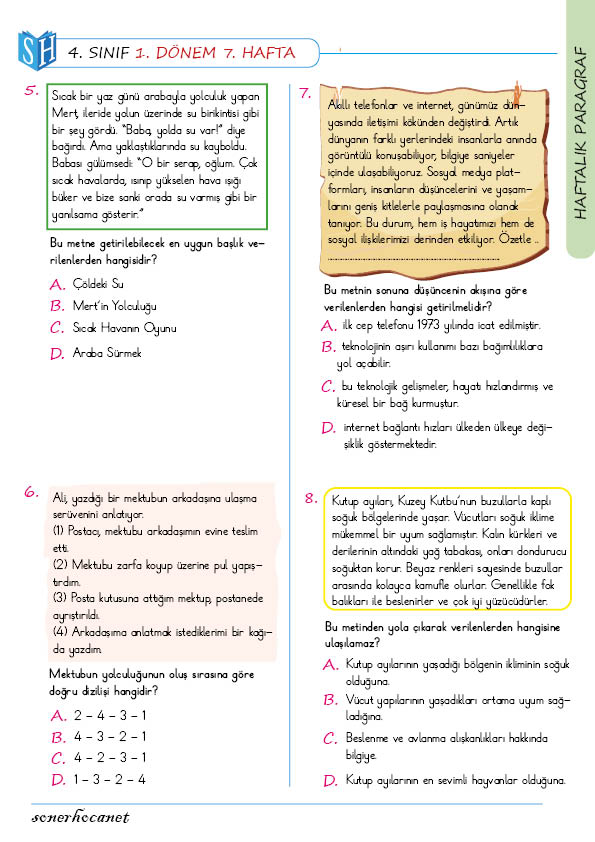 SH
4. SINIF 1. DÖNEM 7. HAFTA
HAFTALIK PARAGRAF
5.
Sıcak bir yaz günü arabayla yolculuk yapan
Mert, ileride yolun üzerinde su birikintisi gibi
bir şey gördü. "Baba, yolda su var!" diye
bağırdı. Ama yaklaştıklarında su kayboldu.
Babası gülümsedi: "O bir serap, oğlum. Çok
sıcak havalarda, ısınıp yükselen hava ışığı
büker ve bize sanki orada su varmış gibi bir
yanılsama gösterir."
Bu metne getirilebilecek en uygun başlık ve-
rilenlerden hangisidir?
A. Çöldeki Su
B. Mert'in Yolculuğu
C. Sıcak Havanın Oyunu
D. Araba Sürmek
6.
Ali, yazdığı bir mektubun arkadaşına ulaşma
serüvenini anlatıyor.
(1) Postacı, mektubu arkadaşımın evine teslim
etti.
(2) Mektubu zarfa koyup üzerine pul yapış-
tırdım.
(3) Posta kutusuna attığım mektup, postanede
ayrıştırıldı.
(4) Arkadaşıma anlatmak istediklerimi bir kağı-
da yazdım.
Mektubun yolculuğunun oluş sırasına göre
doğru dizilişi hangidir?
A. 2 – 4 – 3 – 1
B. 4 – 3 – 2 – 1
C. 4 – 2 – 3 – 1
D. 1 – 3 – 2 – 4
7.
Akıllı telefonlar ve internet, günümüz dün-
yasında iletişimi kökünden değiştirdi. Artık
dünyanın farklı yerlerindeki insanlarla anında
görüntülü konuşabiliyor, bilgiye saniyeler
içinde ulaşabiliyoruz. Sosyal medya plat-
formları, insanların düşüncelerini ve yaşam-
larını geniş kitlelerle paylaşmasına olanak
tanıyor. Bu durum, hem iş hayatımızı hem de
sosyal ilişkilerimizi derinden etkiliyor. Özetle ..
......................................................................
Bu metnin sonuna düşüncenin akışına göre
verilenlerden hangisi getirilmelidir?
A. ilk cep telefonu 1973 yılında icat edilmiştir.
B. teknolojinin aşırı kullanımı bazı bağımlılıklara
yol açabilir.
C. bu teknolojik gelişmeler, hayatı hızlandırmış ve
küresel bir bağ kurmuştur.
D. internet bağlantı hızları ülkeden ülkeye deği-
şiklik göstermektedir.
8.
Kutup ayıları, Kuzey Kutbu'nun buzullarla kaplı
soğuk bölgelerinde yaşar. Vücutları soğuk iklime
mükemmel bir uyum sağlamıştır. Kalın kürkleri ve
derilerinin altındaki yağ tabakası, onları dondurucu
soğuktan korur. Beyaz renkleri sayesinde buzullar
arasında kolayca kamufle olurlar. Genellikle fok
balıkları ile beslenirler ve çok iyi yüzücüdürler.
Bu metinden yola çıkarak verilenlerden hangisine
ulaşılamaz?
A. Kutup ayılarının yaşadığı bölgenin ikliminin soğuk
olduğuna.
B. Vücut yapılarının yaşadıkları ortama uyum sağ-
ladığına.
C. Beslenme ve avlanma alışkanlıkları hakkında
bilgiye.
D. Kutup ayılarının en sevimli hayvanlar olduğuna.
sonerhocanet